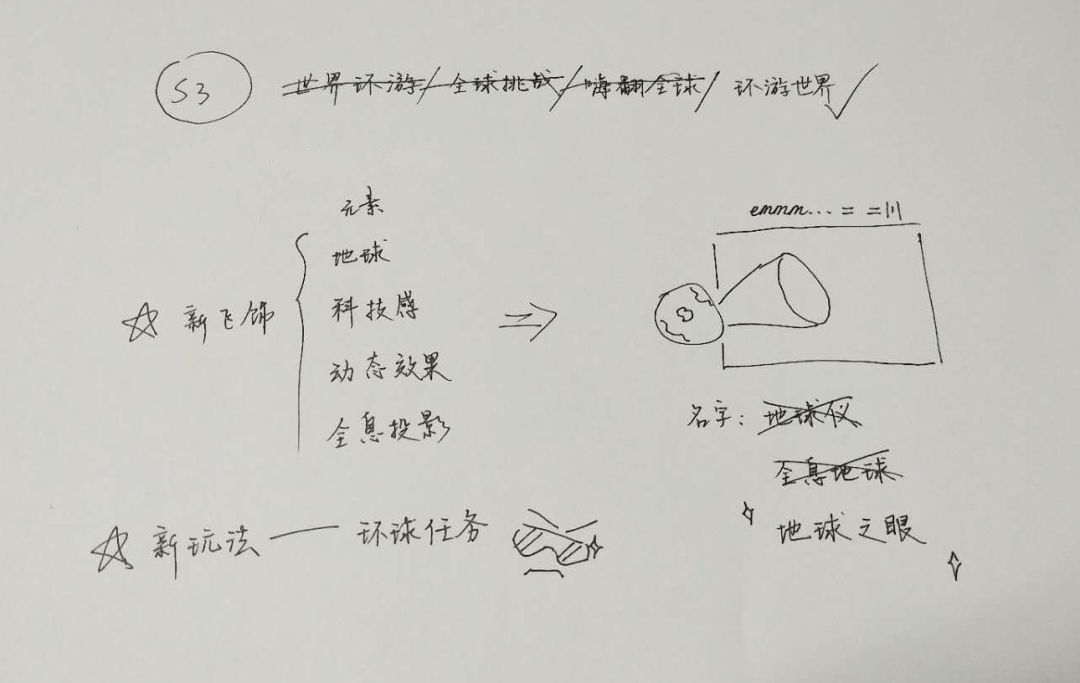 S3 世界环游/全球挑战/嗨翻全球/环游世界✓
元素
地球
☆ 新飞饰
科技感
动态效果
全息投影
emmm... = =|||
名字：地球仪
全息地球
地球之眼
☆ 新玩法——环球任务